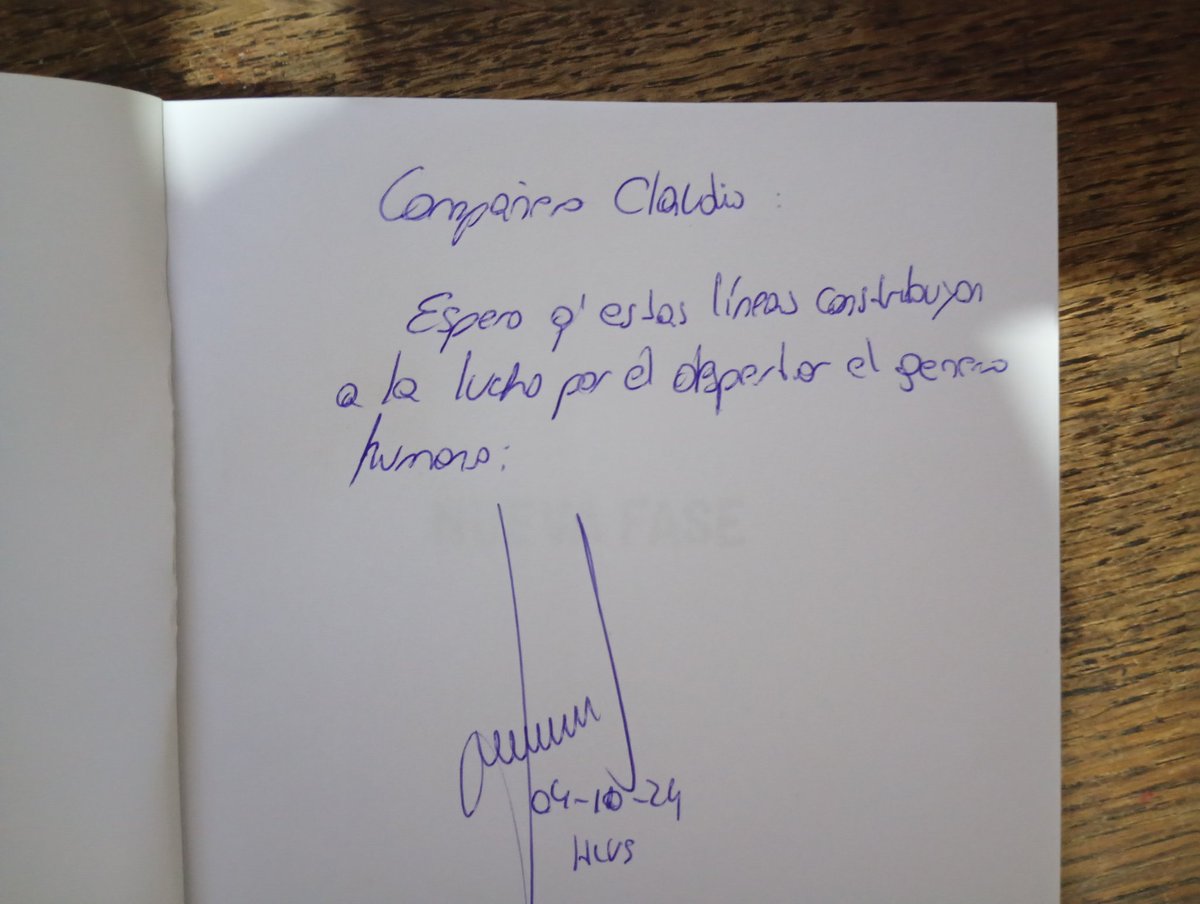 Compañero Claudio :
Espero q' estas líneas constribuyan
a la lucha por el despertar el genero
humano:
NUEVA FASE
04-10-24
HCVS